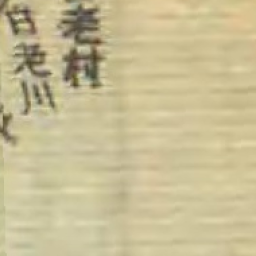 老村
白老川